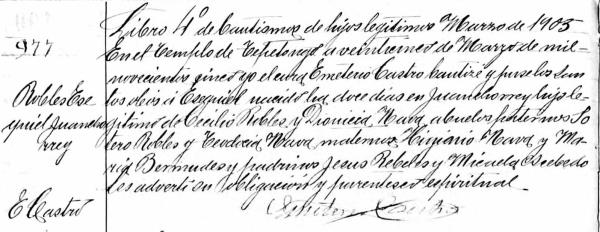 Libro 4º de Bautismos de hijos legitimos Marzo de 1905
977
En el Templo de Tepetongo a veintitres de Marzo de mil
novecientos cinco yo el cura Emeterio Castro bautizé y puse los san
Robles Ese
quiel Juancho
rrey
tos oleos á Esequiel nacido ha doce dias en Juanchorrey hijo le
gitimo de Cecilio Robles y Dionicia Nava abuelos paternos So
tero Robles y Teodocia Nava maternos Higinio Nava y Ma
ria Bermudes y padrinos Jesus Robels y Micaela Acebedo
les adverti su obligacion y parentesco espiritual
E Castro
Emeterio Castro